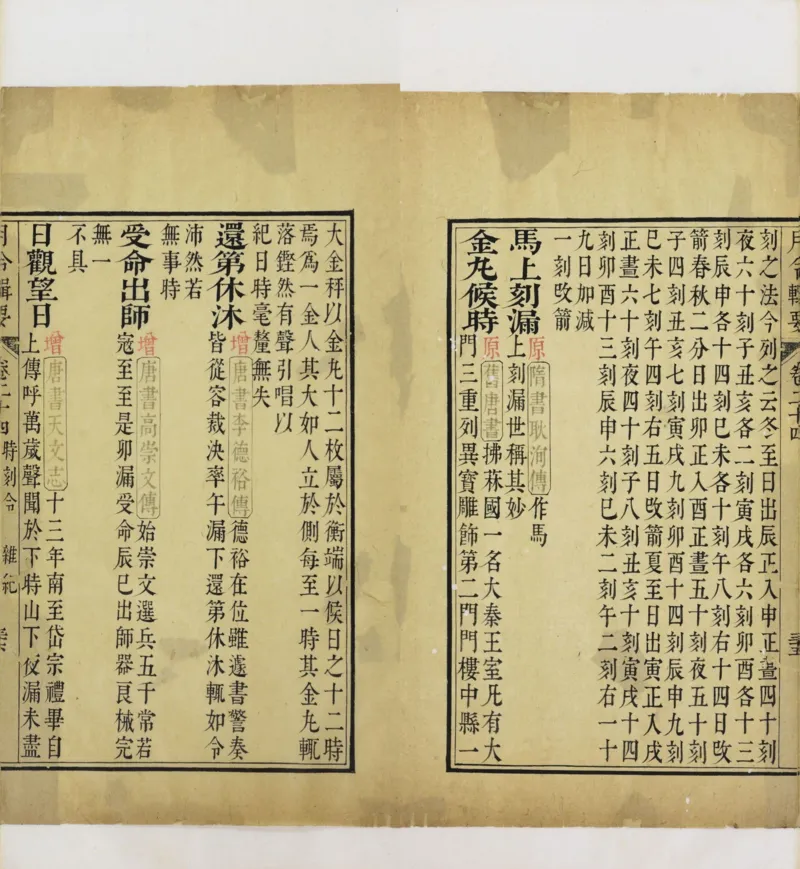 月令輯要 卷二十四
刻之法今列之云冬至日出辰正入申正晝四十刻
夜六十刻子丑亥各二刻寅戌各六刻卯酉各十三
刻辰申各十四刻巳未各十刻午八刻右十四日改
箭春秋二分日出卯正入酉正晝五十刻夜五十刻
子四刻丑亥七刻寅戌九刻卯酉十四刻辰申九刻
巳未七刻午四刻右五日改箭夏至日出寅正入戌
正晝六十刻夜四十刻子八刻丑亥十刻寅戌十四
刻卯酉十三刻辰申六刻巳未二刻午二刻右一十
九日加減
一刻改箭
馬上刻漏 原 隋書耿洵傳 作馬
上刻漏世稱其妙
金丸候時 原 舊唐書 拂菻國一名大秦王室凡有大
門三重列異寶雕飾第二門門樓中縣一
大金秤以金丸十二枚屬於衡端以候日之十二時
焉為一金人其大如人立於側每至一時其金丸輒
落鏗然有聲引唱以
紀日時毫釐無失
還第休沐 增 唐書李德裕傳 德裕在位雖遽書警奏
皆從容裁決率午漏下還第休沐輒如令
沛然若
無事時
受命出師 增 唐書高崇文傳 始崇文選兵五千常若
寇至至是卯漏受命辰巳出師器良械完
無一
不具
日觀望日 增 唐書天文志 十三年南至岱宗禮畢自
上傳呼萬歲聲聞於下時山下夜漏未盡
月令輯要 卷二十四 時刻令 雜紀